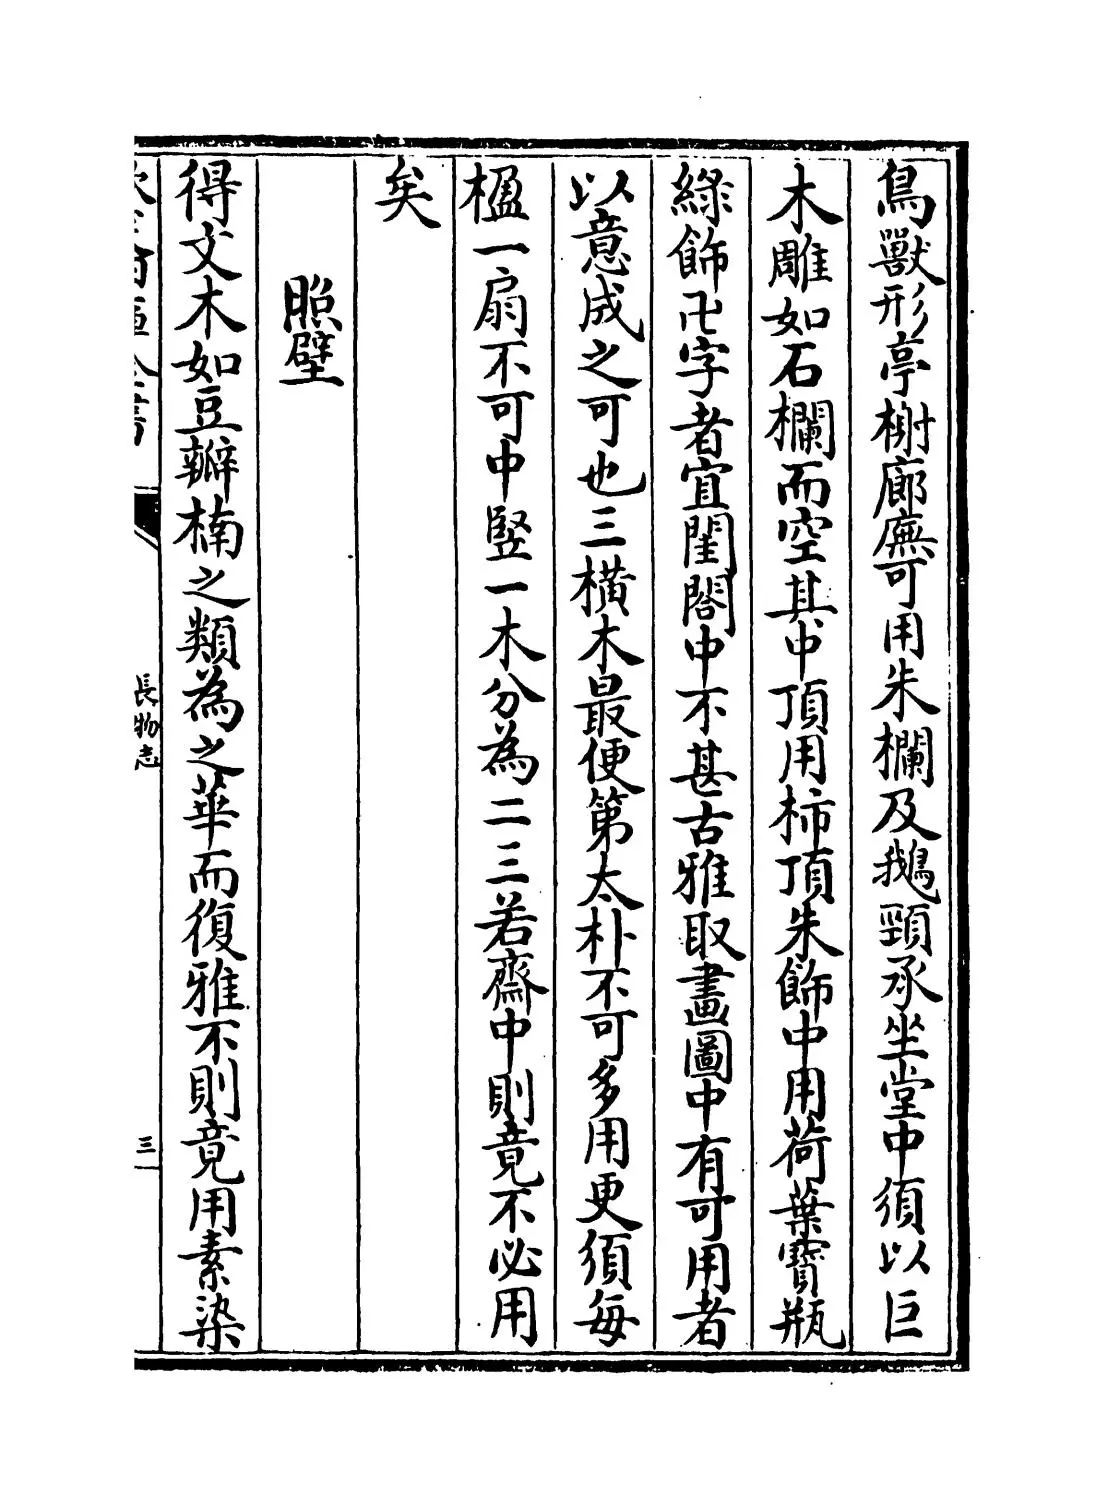 鳥獸形亭榭廊廡可用朱欄及鵝頸承坐堂中須以巨
木雕如石欄而空其中頂用柿頂朱飾中用荷葉寶瓶
綠飾卍字者宜閨閤中不甚古雅取畫圖中有可用者
以意成之可也三橫木最便第太朴不可多用更須每
楹一扇不可中竪一木分為二三若齋中則竟不必用
矣
照壁
得文木如豆瓣楠之類為之華而復雅不則竟用素染
長物志
三